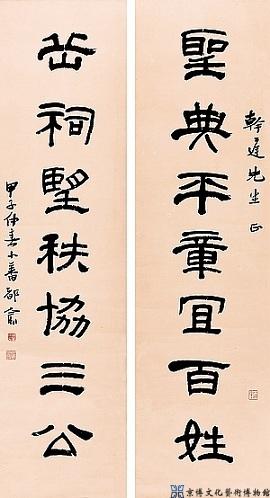 聖典平章宜百姓
幹廷先生正
岳祠望秩協三公
甲子仲春小蕃鄒俞
京博文化藝術博物館